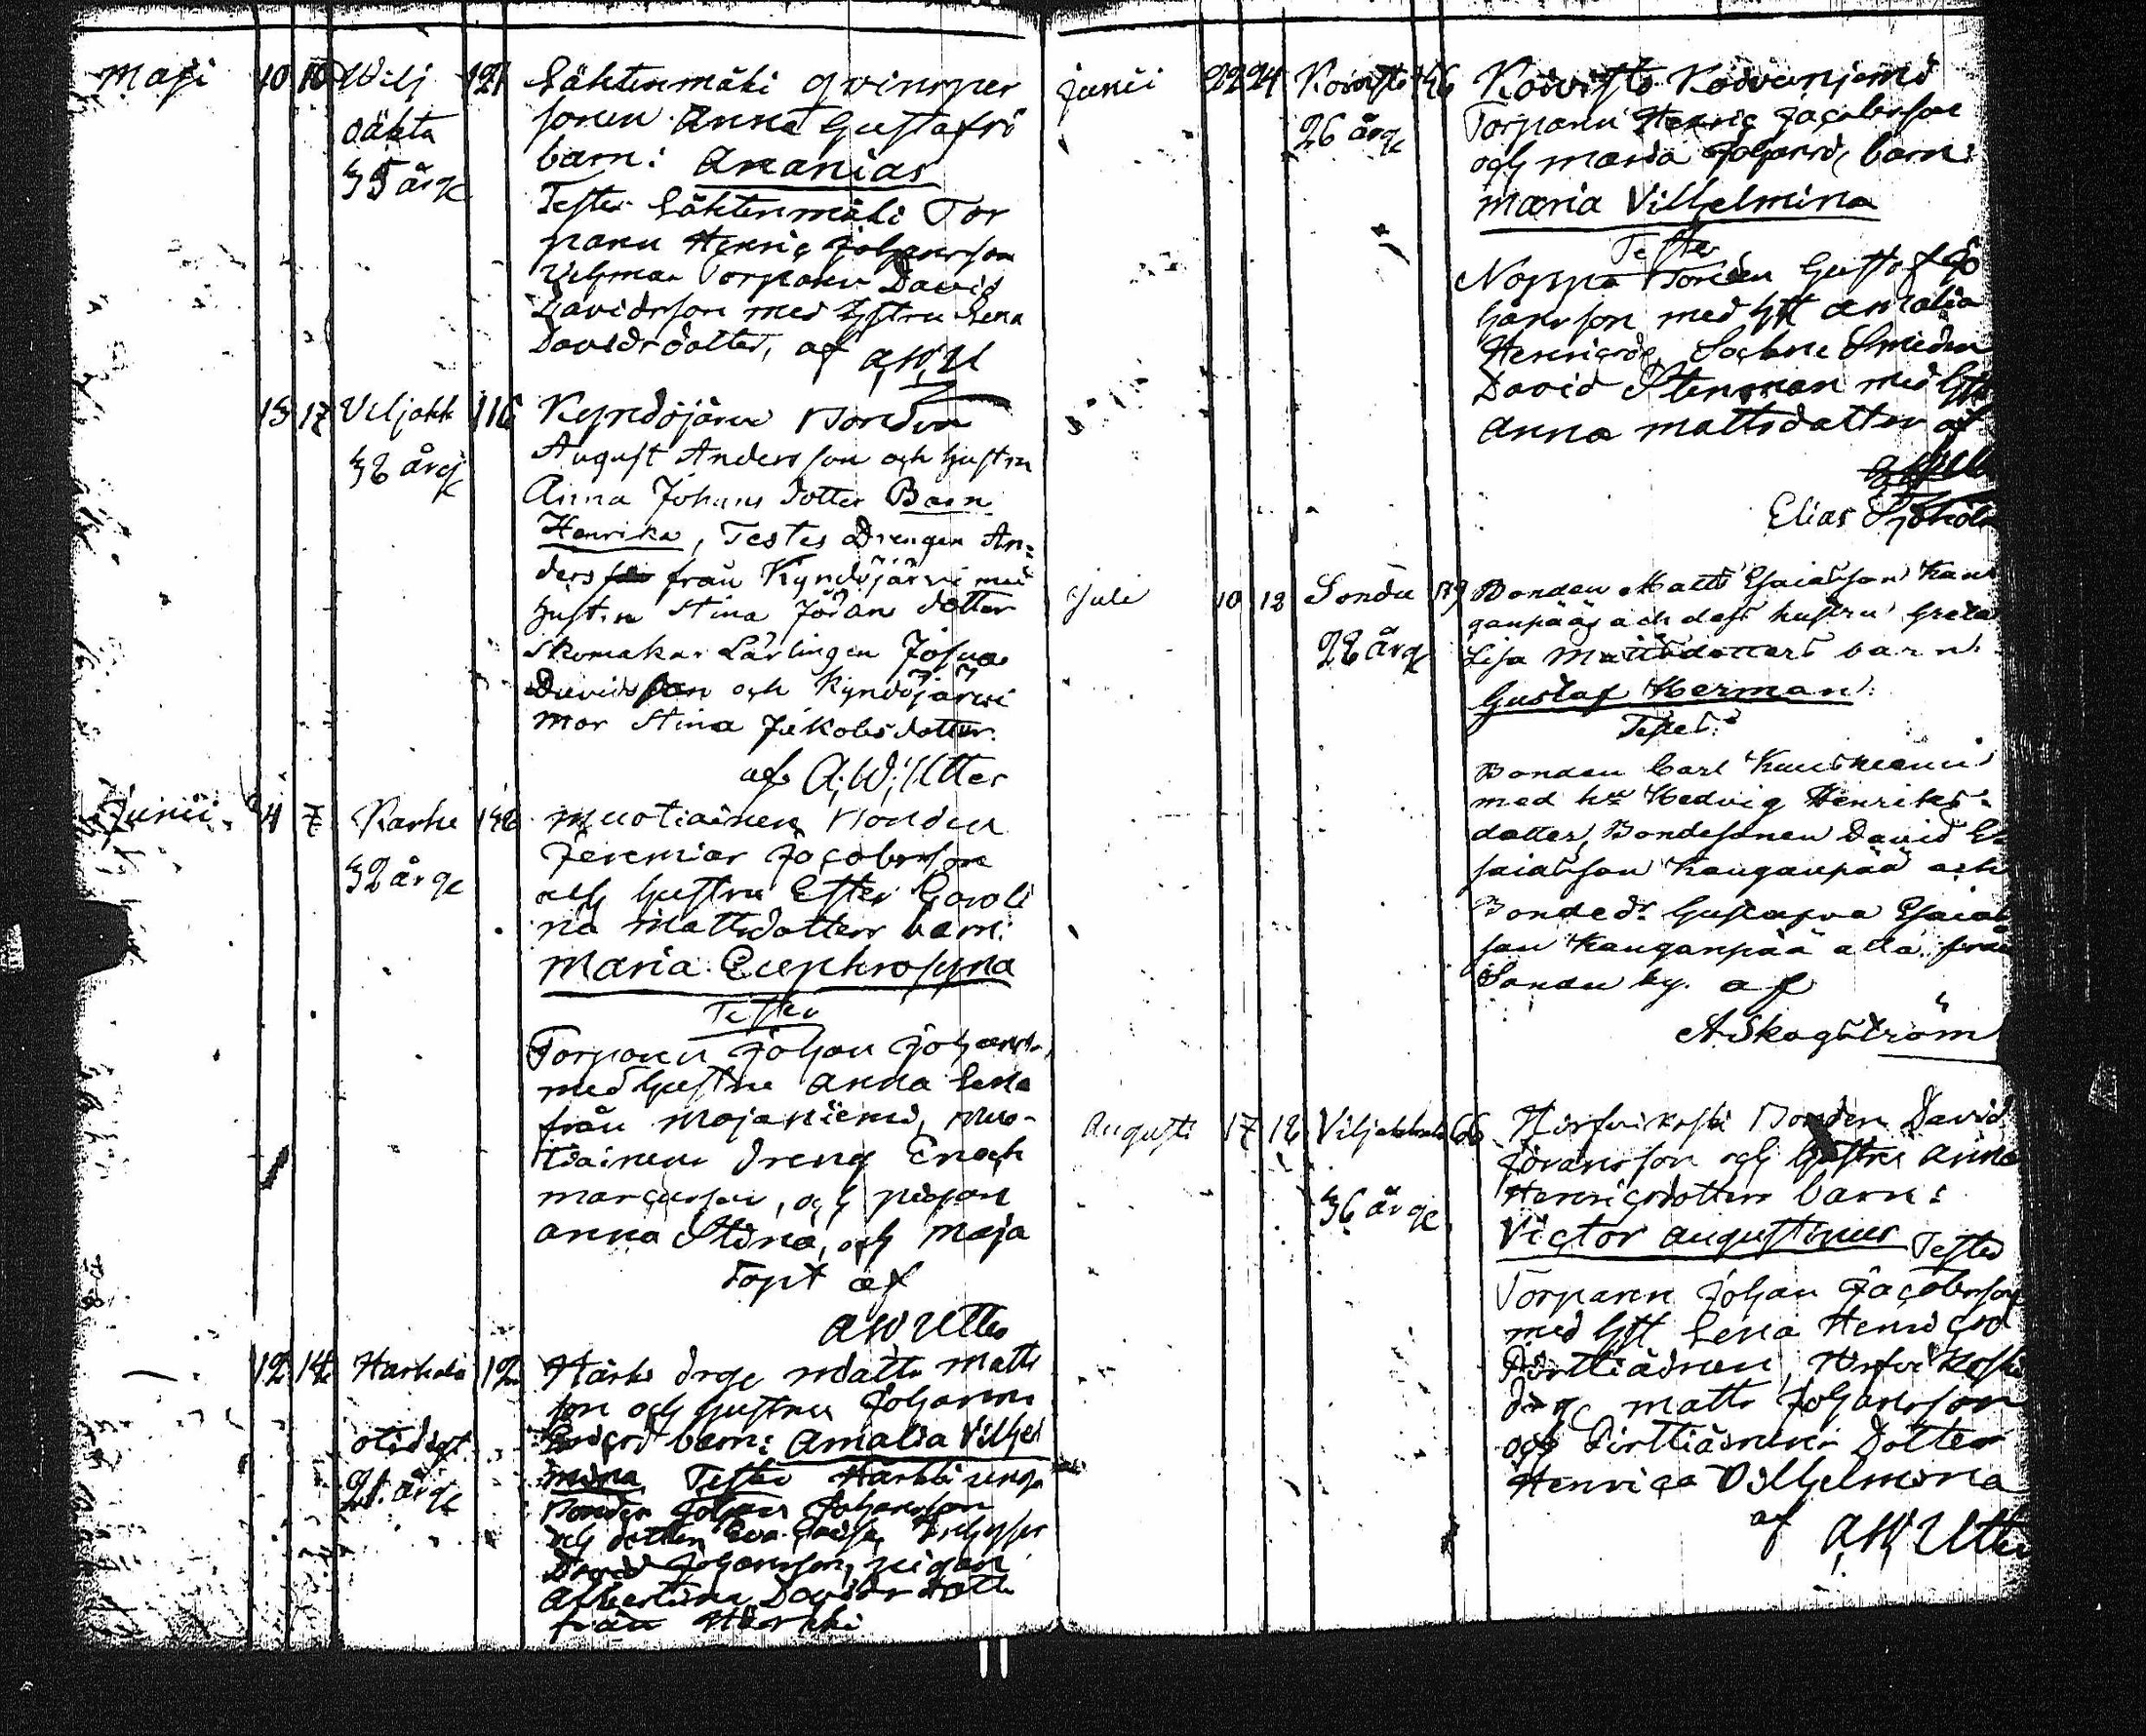 Maji 10 10 Wilj 121 Lähtenmäki qvinsper
oäkta sonen Anna Gustafsd
35 årg barn: Ananias
Testes Lähtenmäki Tor
paren Henric Johansson
Torparen David
Davidsson med hustru Lena
Davidsdotter, af A,W,U
15 17 Viljakk 116 Kyrdöjärvi Bonden
38 årg August Andersson och hustru
Anna Johans dotter Barn
Henrika, Testes Drengen An=
ders från Kyndöjärvi med
hustru Stina Johans dotter
Skomakar Lärlingen Josua
Davidsson och Kyndöjärwi
mor Stina Jakobsdotter.
af A,W, Utter
Junii 4 7 Karhe Muotiainen Bonden
32 årg Jeremias Jacobsson
och hustru Ester Caroli
na Mattsdotters barn:
Maria Euphrosyna
Testes
Torparen Johan Johanss.
med hustru Anna Lena
från Majaniemi, Muo-
tiainen dreng Enoch
Marcusson, och pigan
Anna Stina, och Maja
döpt af
AW Utter
12 14 12 Härki drge Matts Matts
son och hustru Johanna
otidigt barn: Amalia Vilhel
21 årg mina Testes Härkki
Bonden Johan Johansson
och dottren Eva
David Johansson, pigan
Albertina Davids dotter
från Härkki
junii 22 24 Koivisto 46 Koivisto Koivuniemi
26 årg Torparen Henric Jacobsson
och Maria Johansd, barn:
Maria Vilhelmina
Testes
Noppa Bonden Gustaf Jo
hansson med hst Amalia
Henricsd, Sockne Smeden
David Stenman med hst
Anna Mattsdotter af
Elias
Juli 10 12 Sondu 179 Bonden Matts Esaiasson Kan
28 årg ganpää och dess hustru Greta
Lisa Mattsdotters barn:
Gustaf Herman:
Testes:
Bonden Carl Kuusniemi
med hu Hedvig Henriks-
dotter, Bondesonen David E
saiasson Kanganpää och
Bonded. Gustafva Esaias
son Kanganpää alla från
Sondu by. af
A Skogström
Augusti 17 18 Viljakkala 66 Hirfvikoski Bonden David
36 årg Johansson och hustru Anna
Henricsdotters barn:
Victor Augustinus Testes
Torparen Johan Jacobsson
med hst Lena Henricsd
Pirttiäinen, Hirfvikoski
drg Matts Johansson
och Pirttiäinen Dotter
Henrica Vilhelmina
af A,W, Utter